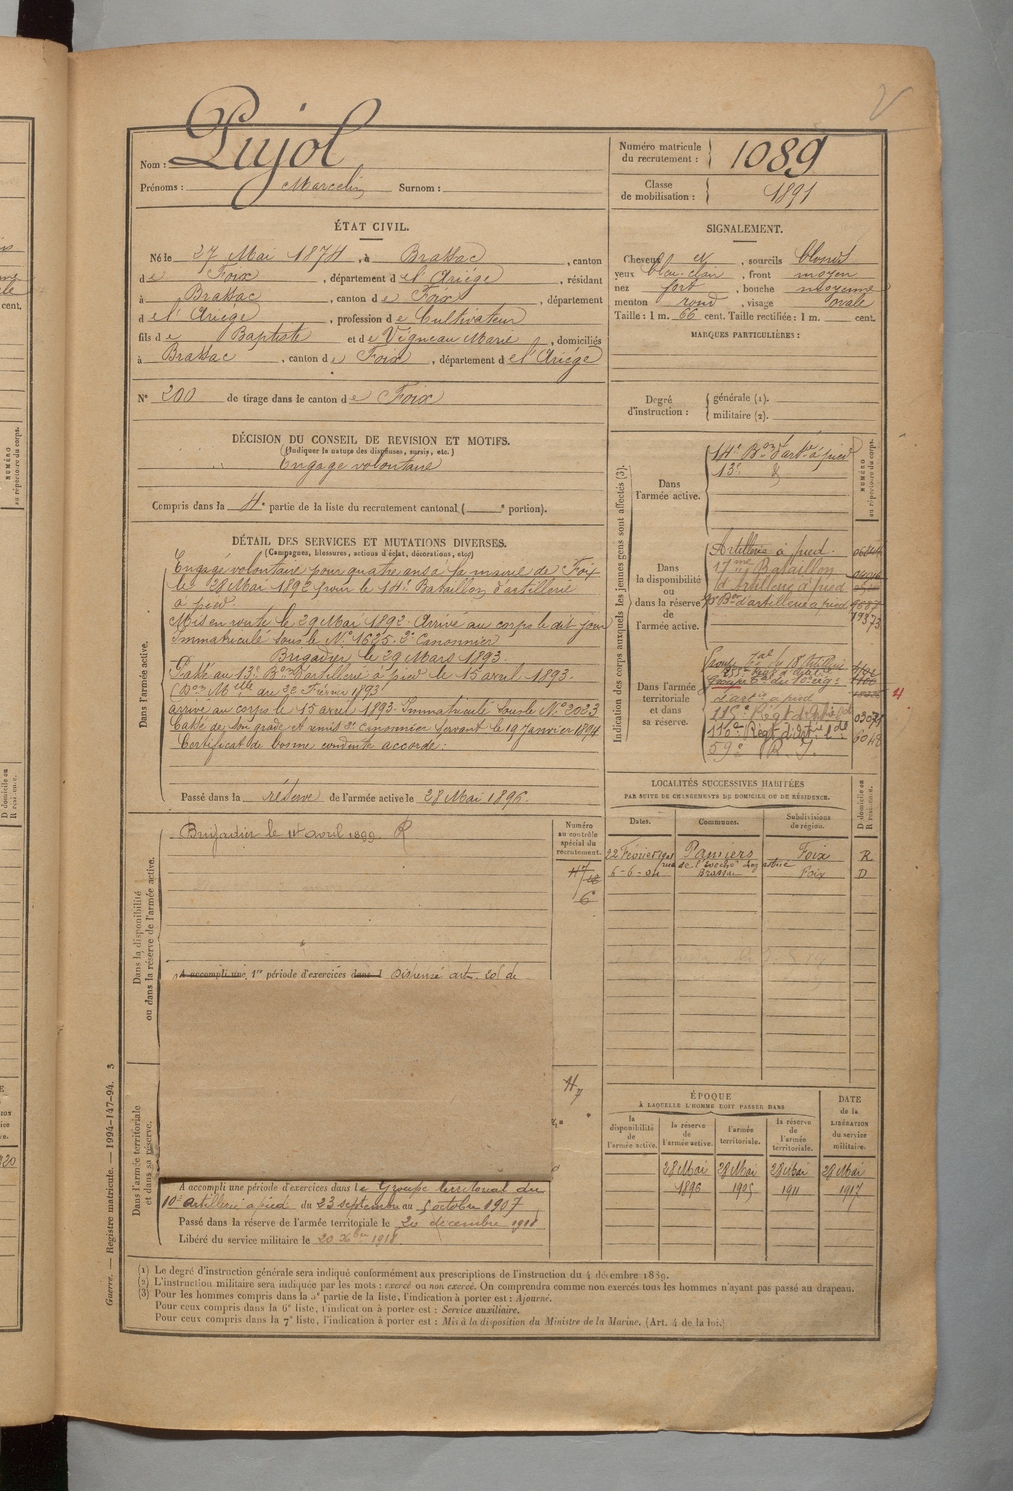 Nom : Pujol
Prénoms : Marcelin Surnom :
Numéro matricule du recrutement : 1089
Classe de mobilisation : 1891
ÉTAT CIVIL.
Né le 27 Mai 1874, à Brassac, canton
de Foix, département de l'Ariége, résidant
à Brassac, canton de Foix, département
de l'Ariége, profession de Cultivateur
fils de Baptiste et de Vigneau Marie, domiciliés
à Brassac, canton de Foix, département de l'Ariége
N° 200 de tirage dans le canton de Foix
SIGNALEMENT.
Cheveux et, sourcils blonds
yeux bleu-clair, front moyen
nez fort, bouche moyenne
menton rond, visage ovale
Taille : 1 m. 66 cent. Taille rectifiée : 1 m. cent.
MARQUES PARTICULIÈRES :
Degré d'instruction : générale (1).
militaire (2).
DÉCISION DU CONSEIL DE REVISION ET MOTIFS.
(Indiquer la nature des dispenses, sursis, etc.)
Engagé volontaire
Compris dans la 4e partie de la liste du recrutement cantonal ( e portion).
DÉTAIL DES SERVICES ET MUTATIONS DIVERSES.
(Campagnes, blessures, actions d'éclat, décorations, etc.)
Dans l'armée active.
Engagé volontaire pour quatre ans à la mairie de Foix
le 28 Mai 1892 pour le 14e Bataillon d'artillerie
à pied.
Mis en route le 29 Mai 1892 Arrivé au corps le dit jour
Immatriculé sous le N° 1625. 2e Canonnier
Brigadier le 29 Mars 1893.
Passé au 13e Bon d'artillerie à pied le 15 avril 1893.
(Don Mlle du 20 Février 1893
arrivé au corps le 15 avril 1893. Immatriculé sous le N° 2023
Cassé de son grade et remis 2e Canonnier servant le 19 Janvier 1894
Certificat de bonne conduite accordé.
Passé dans la réserve de l'armée active le 28 Mai 1896.
Dans la disponibilité ou dans la réserve de l'armée active.
Brigadier le 1er avril 1899. R
Numéro au contrôle spécial du recrutement.
A accompli une 1re période d'exercices dans l dispensé art. 20 de
Dans l'armée territoriale et dans sa réserve.
A accompli une période d'exercices dans le Groupe territorial du
10e Artillerie à pied du 23 septembre au 5 octobre 1907
Passé dans la réserve de l'armée territoriale le
Libéré du service militaire le 20 Xbre 1918
Indication des corps auxquels les jeunes gens sont affectés (3).
NUMÉRO au répertoire du corps.
Dans l'armée active.
14e Bon d'artie à pied
13e d
Dans la disponibilité ou dans la réserve de l'armée active.
Artillerie à pied.
17me Bataillon
d'artillerie à pied
Bon d'artillerie à pied
Dans l'armée territoriale et dans sa réserve.
d'artie à pied
115e Régt d'Artie lde
116e Régt d'Artie lde
59e R.
LOCALITÉS SUCCESSIVES HABITÉES
PAR SUITE DE CHANGEMENTS DE DOMICILE OU DE RÉSIDENCE.
Dates. Communes. Subdivisions de région. D domicile ou R résidence.
22 Février Pamiers Foix R
6-6-04 Brassac Foix D
ÉPOQUE
À LAQUELLE L'HOMME DOIT PASSER DANS
la disponibilité de l'armée active. la réserve de l'armée active. l'armée territoriale. la réserve de l'armée territoriale.
DATE de la LIBÉRATION du service militaire.
28 Mai 28 Mai 28 Mai 28 Mai
1896 1905 1911 1917
(1) Le degré d'instruction générale sera indiqué conformément aux prescriptions de l'instruction du 4 décembre 1889.
(2) L'instruction militaire sera indiquée par les mots : exercé ou non exercé. On comprendra comme non exercés tous les hommes n'ayant pas passé au drapeau.
(3) Pour les hommes compris dans la 5e partie de la liste, l'indication à porter est : Ajourné.
Pour ceux compris dans la 6e liste, l'indication à porter est : Service auxiliaire.
Pour ceux compris dans la 7e liste, l'indication à porter est : Mis à la disposition du Ministre de la Marine. (Art. 4 de la loi.)
Guerre. — Registre matricule. — 1994-147-94. 3